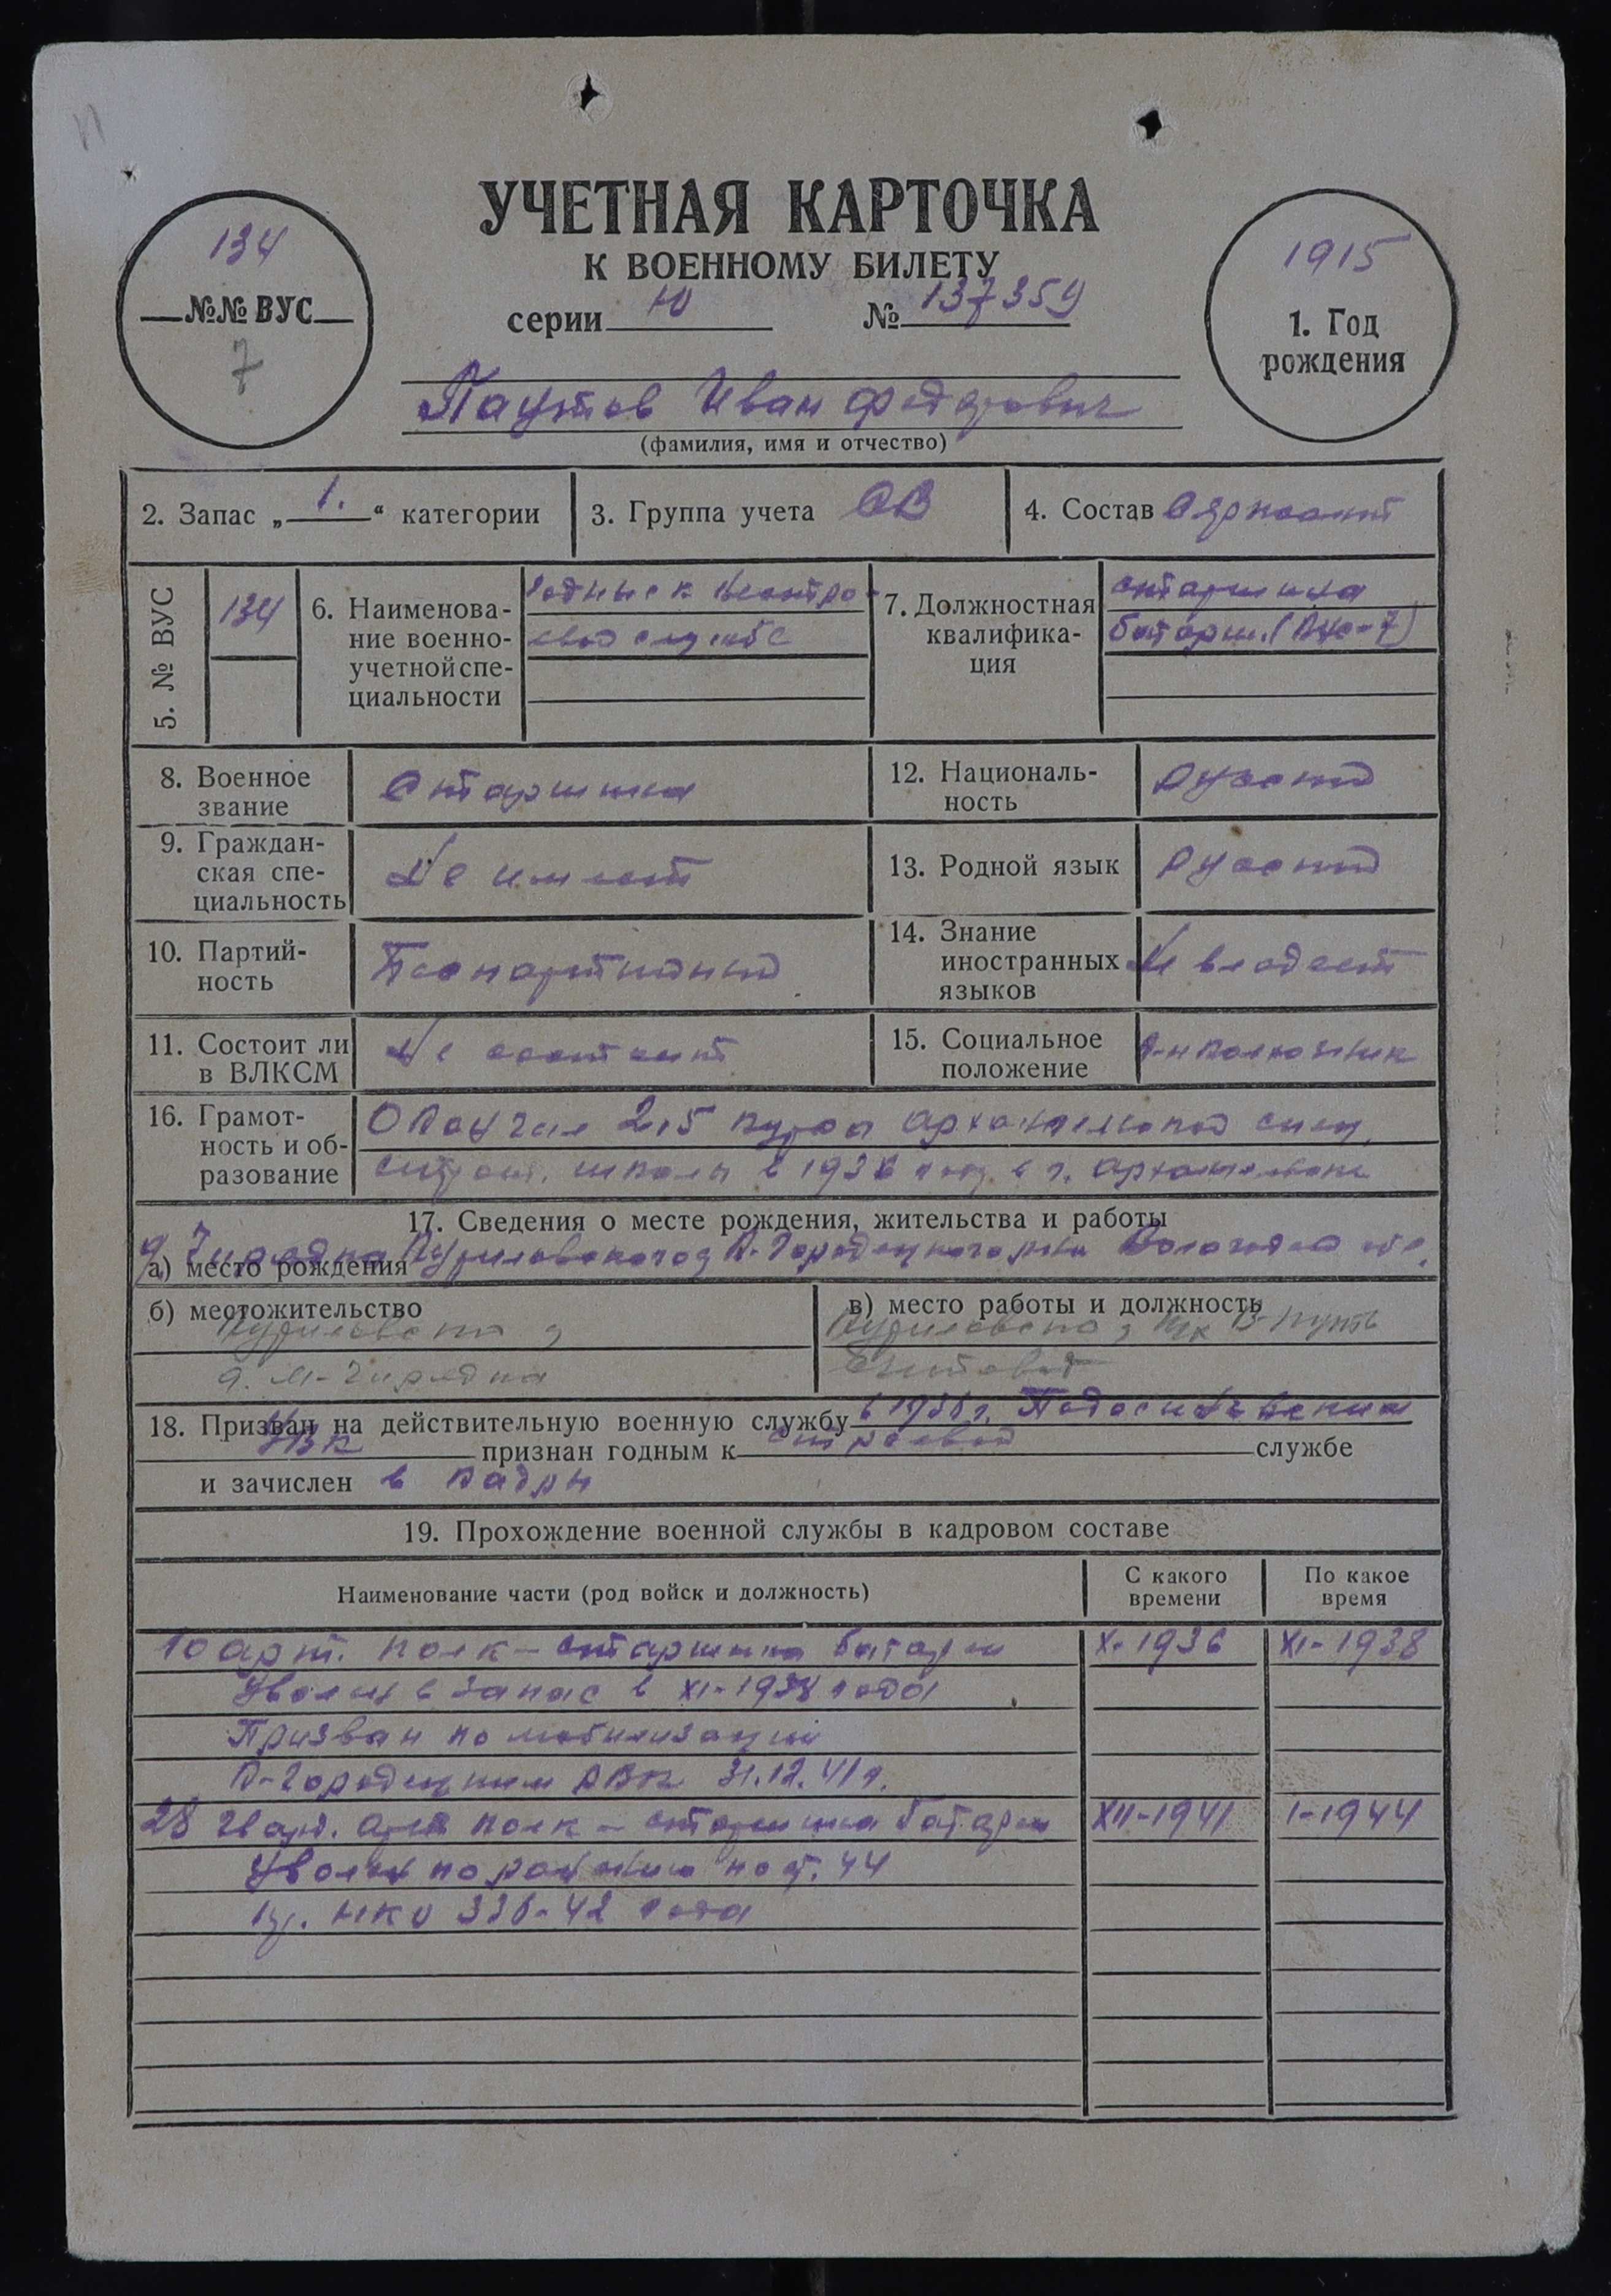 УЧЕТНАЯ КАРТОЧКА
К ВОЕННОМУ БИЛЕТУ
серии Ю № 137359
134
№№ ВУС
7
1915
1. Год
рождения
Паутов Иван Федорович
(фамилия, имя и отчество)
2. Запас „1.“ категории
3. Группа учета СВ
4. Состав Сержант
5. № ВУС
134
6. Наименова-
ние военно-
учетной спе-
циальности
Годные к нестро-
евой службе
7. Должностная
квалифика-
ция
старшина
батареи (Вус-7)
8. Военное
звание
Старшина
12. Националь-
ность
Русский
9. Граждан-
ская спе-
циальность
Не имеет
13. Родной язык
Русский
10. Партий-
ность
Беспартийный
14. Знание
иностранных
языков
Не владеет
11. Состоит ли
в ВЛКСМ
Не состоит
15. Социальное
положение
к-н колхозник
16. Грамот-
ность и об-
разование
Окончил 2,5 курса архангельской
школы в 1936 году в г. Архангельске
17. Сведения о месте рождения, жительства и работы
а) место рождения Куриловского К-Городецкого р-на Вологодской обл.
б) местожительство
Куриловский
д. М-Чирядка
в) место работы и должность
Куриловского Путь
Счетовод
18. Призван на действительную военную службу в 1936 г. Подосиновским
РВК признан годным к строевой службе
и зачислен в кадры
19. Прохождение военной службы в кадровом составе
Наименование части (род войск и должность)
С какого
времени
По какое
время
10 арт. полк - старшина батареи X-1936 XI-1938
Уволен в запас в XI-1938 года
Призван по мобилизации
К-Городецким РВК 31.12.41 г.
28 гвард. арт полк - старшина батареи XII-1941 I-1944
Уволен по ранению по ст. 44
пр. НКО 336-42 года